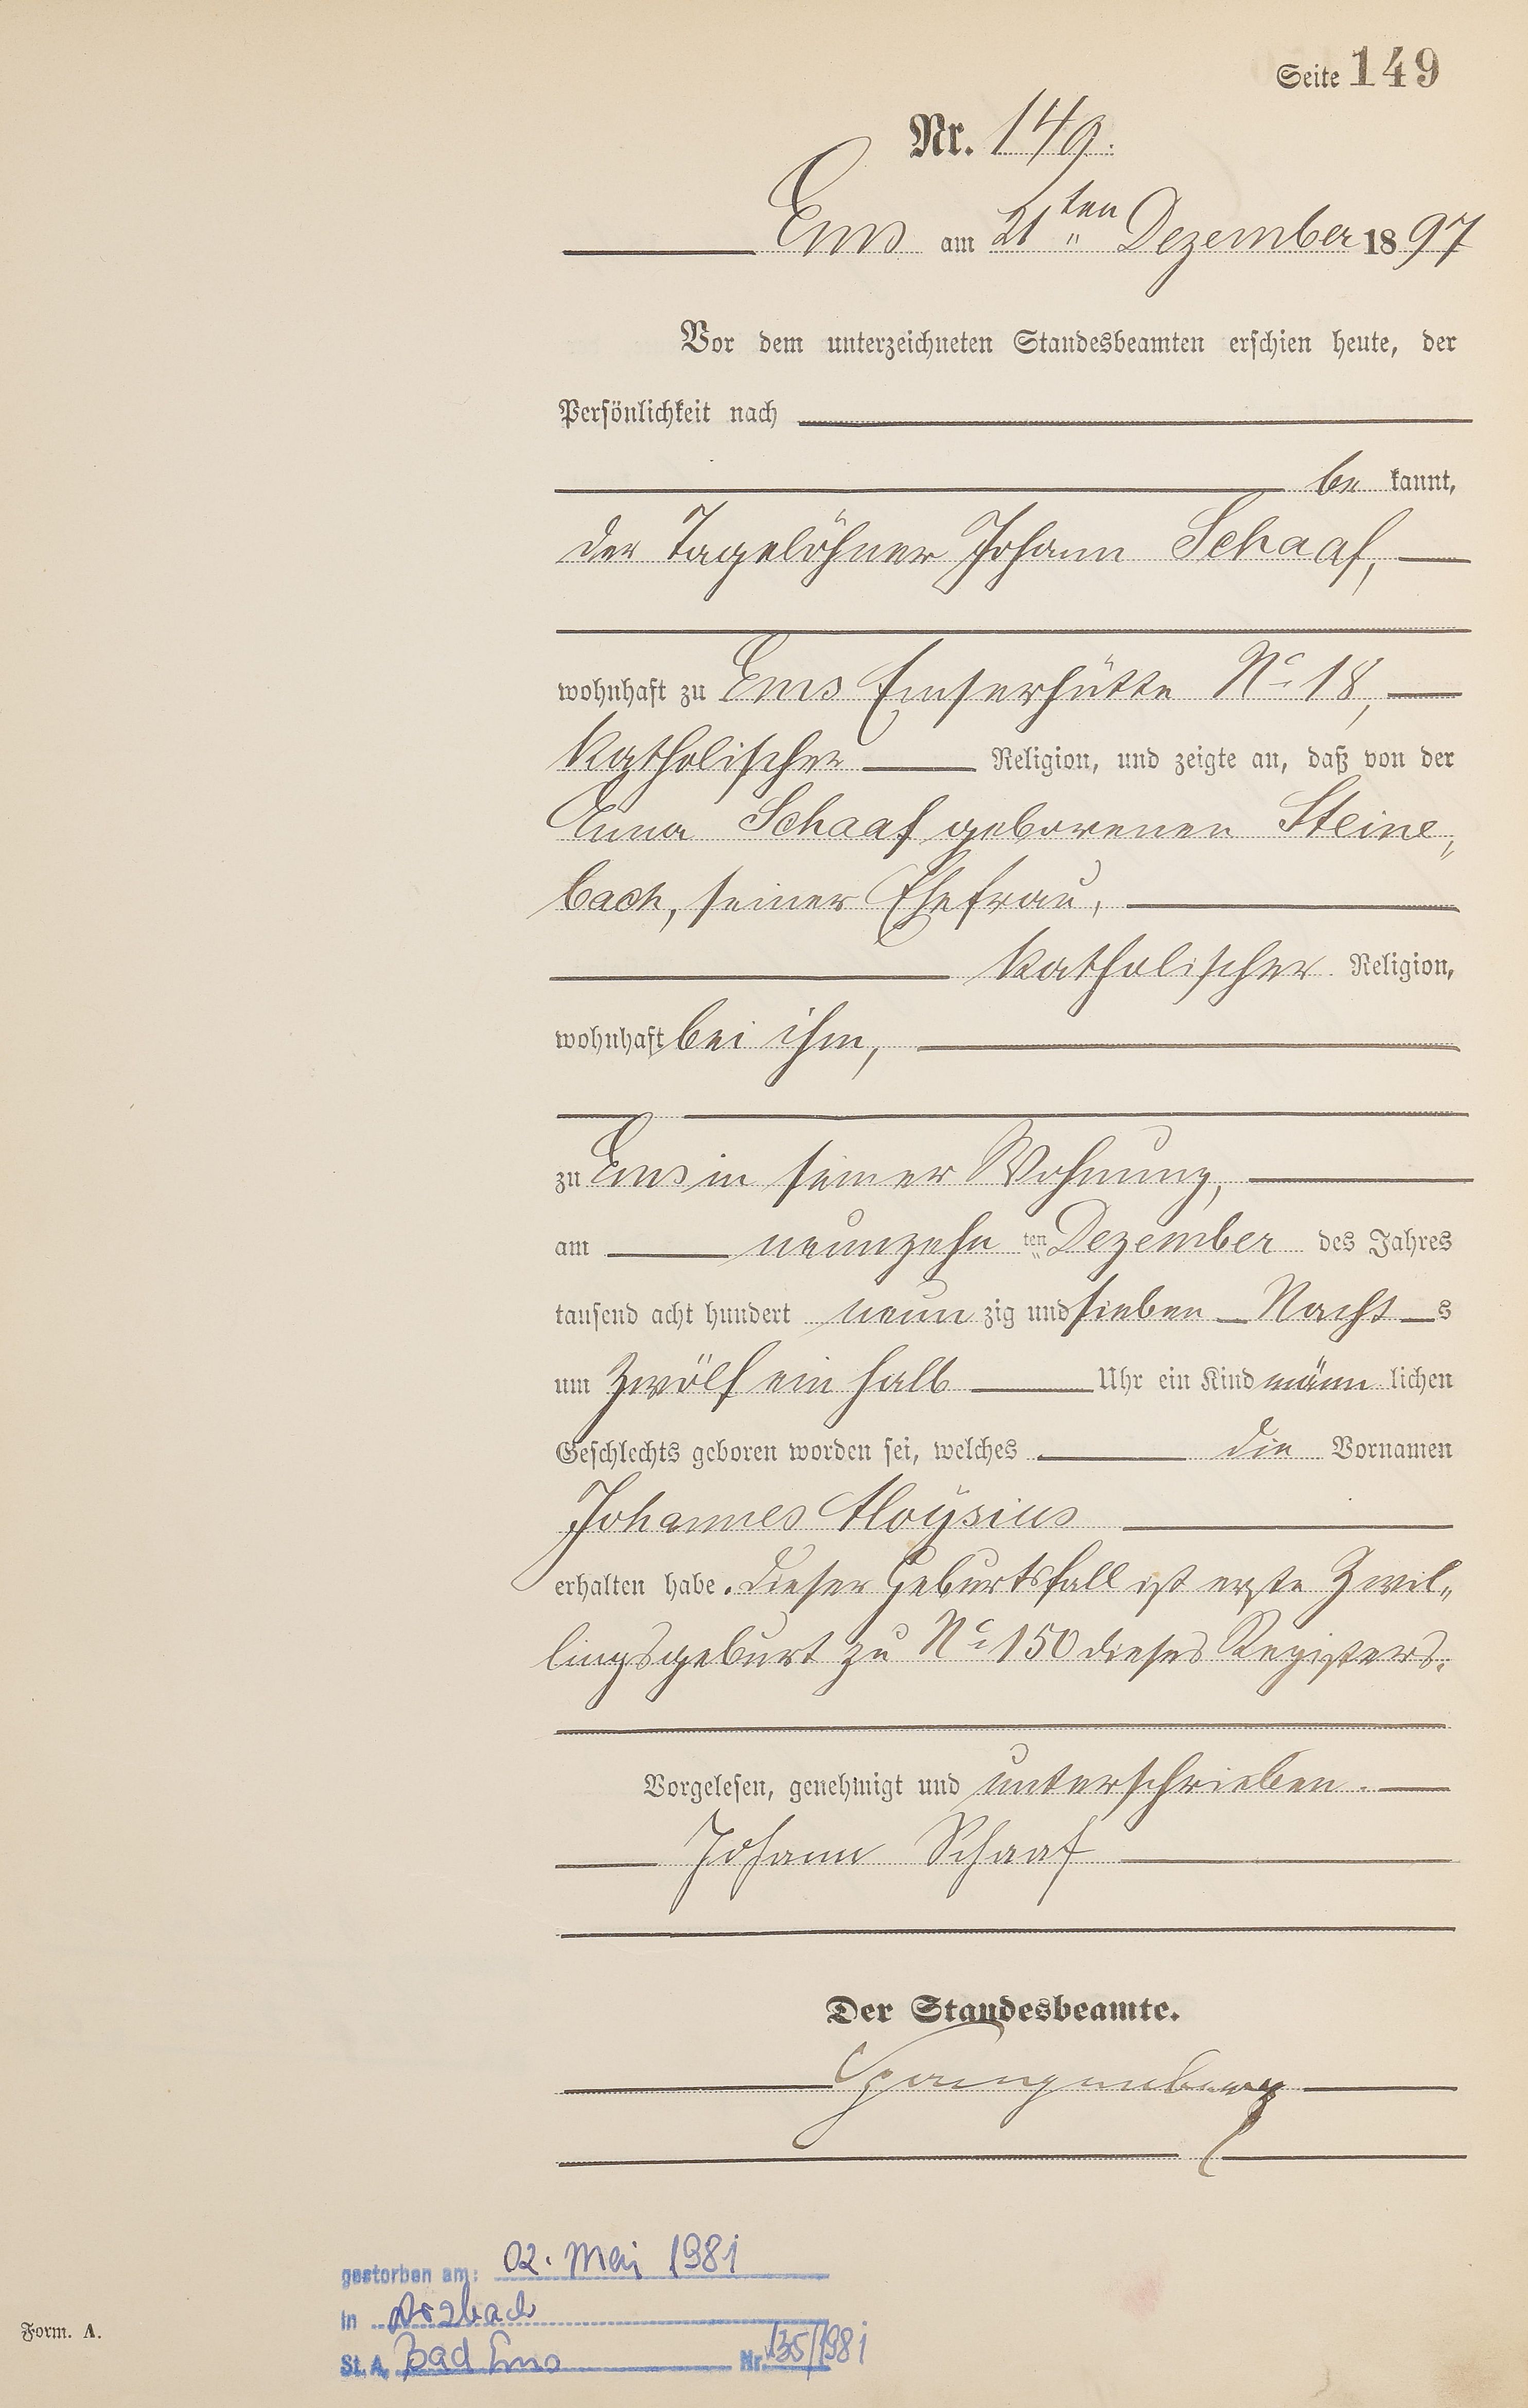 Seite 149
Nr. 149.
Ems am 21ten Dezember 1897
Vor dem unterzeichneten Standesbeamten erschien heute, der
Persönlichkeit nach
be kannt,
der Tagelöhner Johann Schaaf,
wohnhaft zu Ems Emserhütte No 18,
katholischer Religion, und zeigte an, daß von der
Anna Schaaf geborenen Steine„
bach, seiner Ehefrau,
katholischer Religion,
wohnhaft bei ihm,
zu Ems in seiner Wohnung,
am neunzehn ten Dezember des Jahres
tausend acht hundert neun zig und sieben Nacht s
um zwölf ein halb Uhr ein Kind männ lichen
Geschlechts geboren worden sei, welches die Vornamen
Johannes Aloÿsius
erhalten habe. Dieser Geburtsfall ist erste Zwil„
lingsgeburt zu No 150 dieses Registers.
Vorgelesen, genehmigt und unterschrieben.
Johann Schaaf
Der Standesbeamte.
Spangenberg
gestorben am: 02. Mai 1981
in Arzbach
St. A. Bad Ems Nr. 135/1981
Form. A.